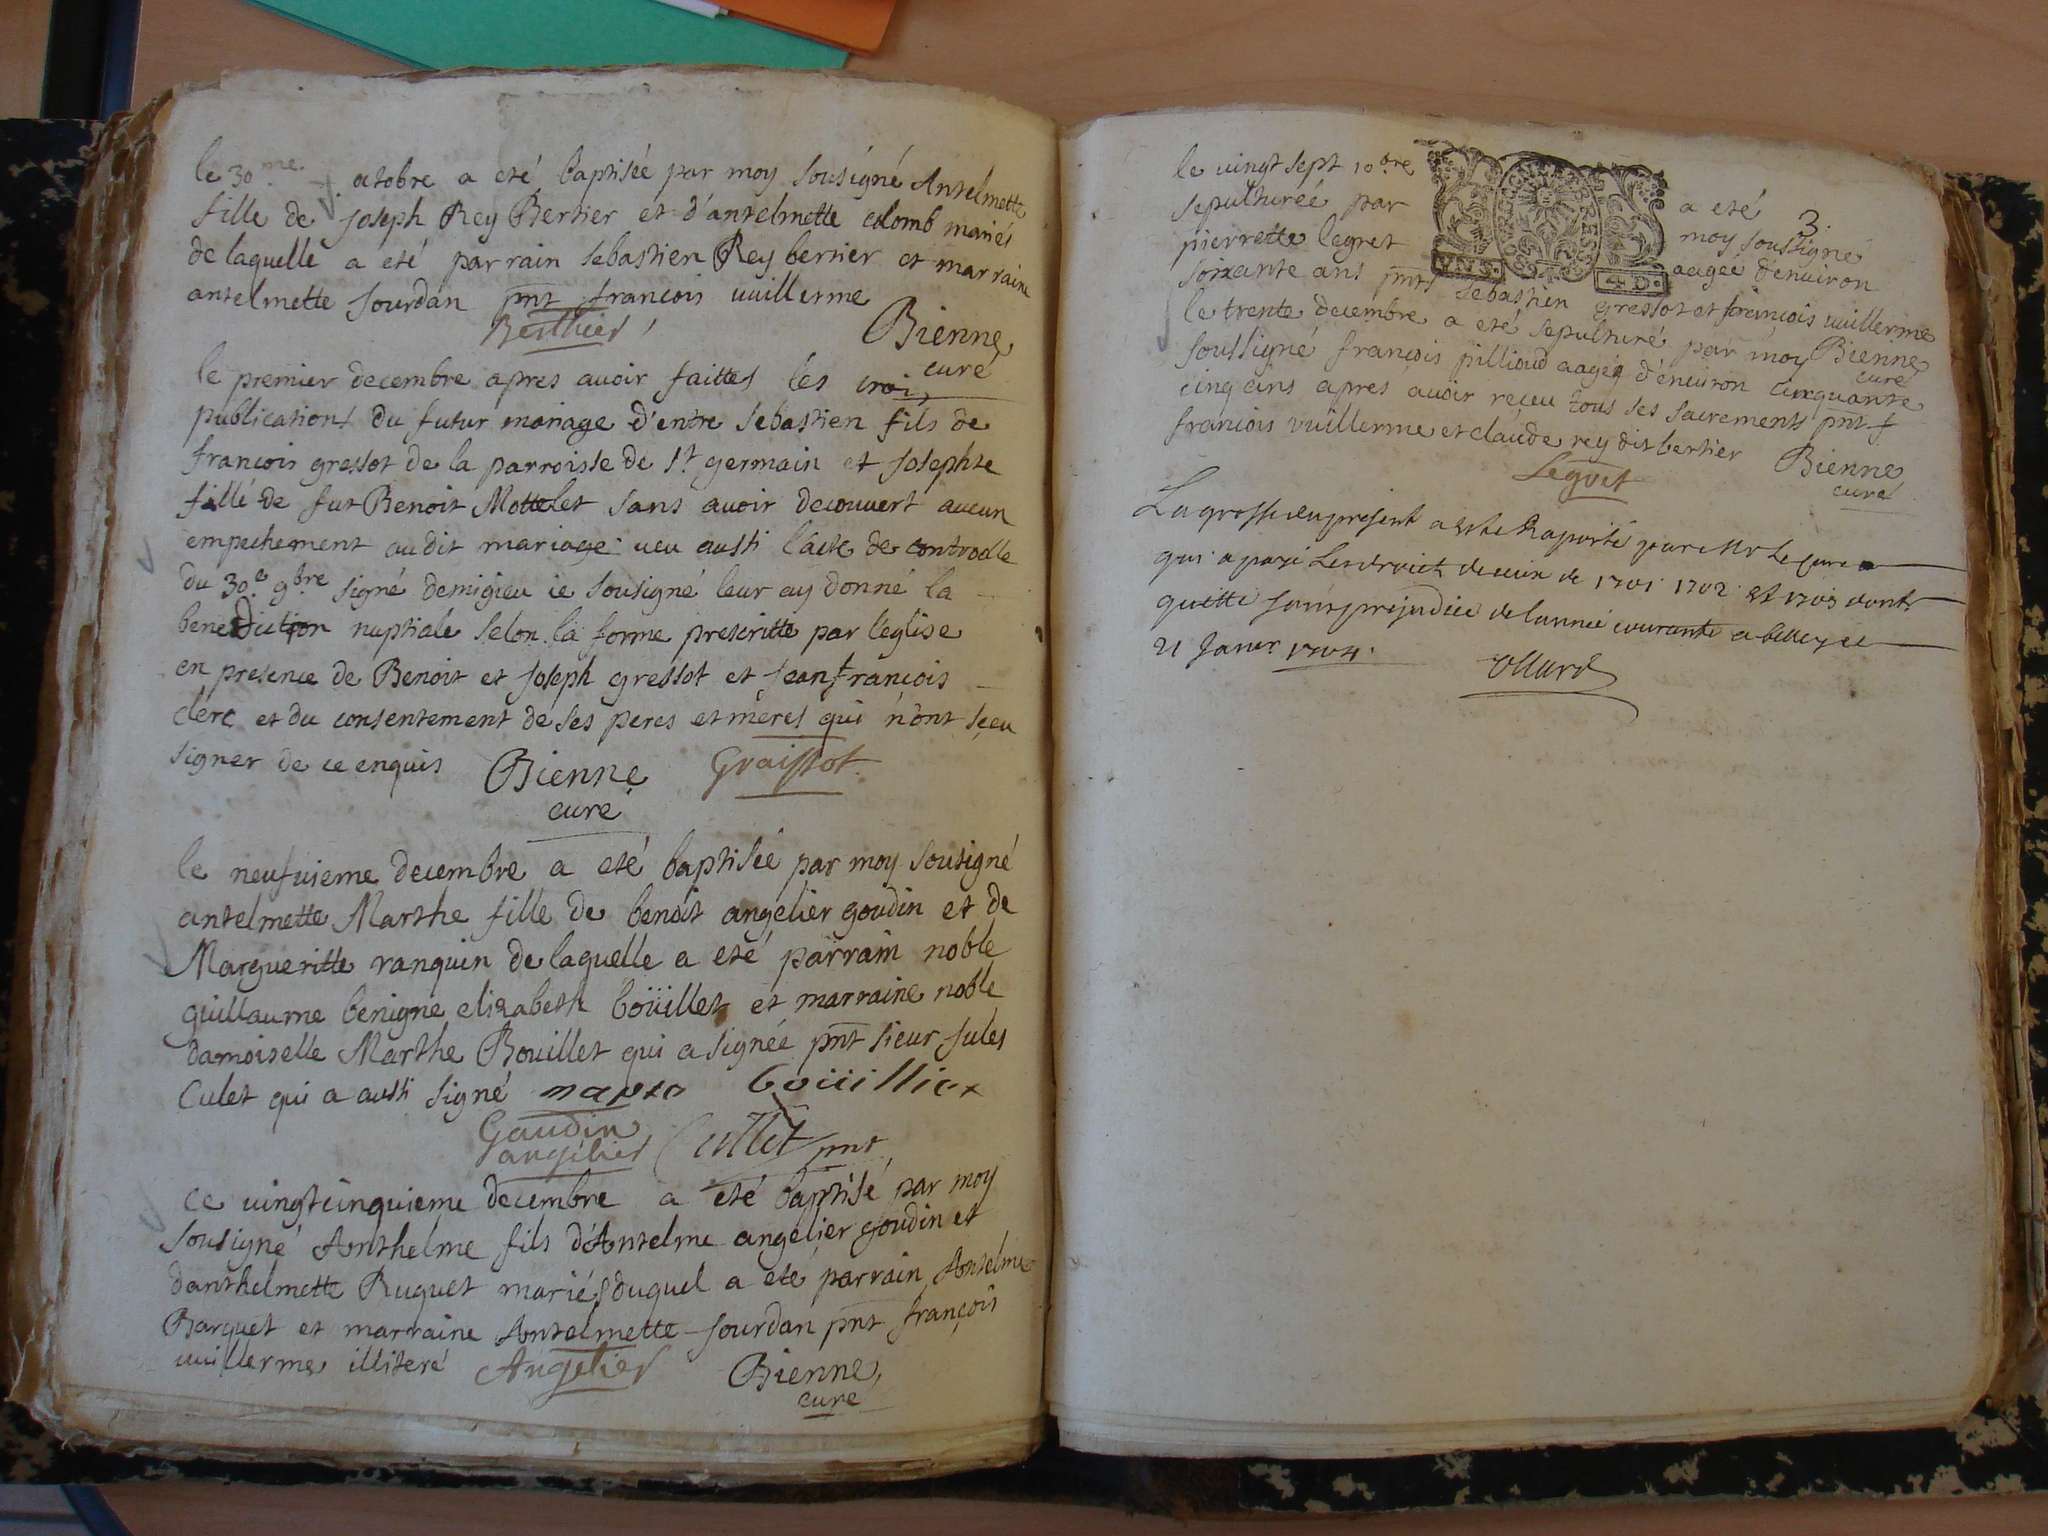 le 30.me octobre a eté baptisée par moy sousigné Antelmette
fille de joseph Rey Bertier et d'antelmette colomb mariés
de laquelle a eté parrain sebastien Rey bertier et marraine
antelmette jourdan pnt francois vuillerme
Berthier Bienne
curé
le premier decembre apres avoir faittes les troi
publications du futur mariage d'entre sebastien fils de
francois gressot de la parroisse de st germain et josephte
fille de fut Benoit Mottelet sans avoir decouvert aucun
empechement audit mariage veu aussi l'acte de controolle
du 30.e 9bre signé demigieu ie sousigné leur ay donné la
benediction nuptiale selon la forme prescritte par leglise
en presence de Benoit et joseph gressot et jean françois
clerc et du consentement de ses peres et meres qui n'ont sçeu
signer de ce enquis Bienne Graissot
curé
le neufvieme decembre a eté baptisée par moy sousigné
antelmette Marthe fille de benoit angelier goudin et de
Margueritte ranquin de laquelle a eté parrain noble
guillaume benigne elizabeth boüillet et marraine noble
damoiselle Marthe Bouillet qui a signée pnt sieur jules
Culet qui a aussi signé marte boüillet
Gaudin
angelier Cullet pnt
ce vingtcinquieme decembre a eté baptisé par moy
sousigné Anthelme fils d'Antelme angelier goudin et
danthelmette Ruguet mariés duquel a eté parrain Antelme
Barquet et marraine Antelmette jourdan pnt françois
vuillerme illiteré Angelier Bienne
curé
3.
le vingt sept 10bre a eté
sepulturée par moy soussigné
pierrette legret aagée d'environ
soixante ans pnts sebastien gressot et françois vuillerme
le trente decembre a eté sepulturé par moy Bienne
curé
soussigné françois pillioud aagé d'environ cinquante
cinq ans apres avoir receu tous ses sacrements pnt f
francois vuillerme et claude rey dit bertier Bienne
Legret curé
La grosse du present a esté Raporté par Mr Le cure
qui a payé Les droict de ceux de 1701 1702 et 1703 dont
quitte sans prejudice de l'année courante a belley ce
21 Janer 1704.